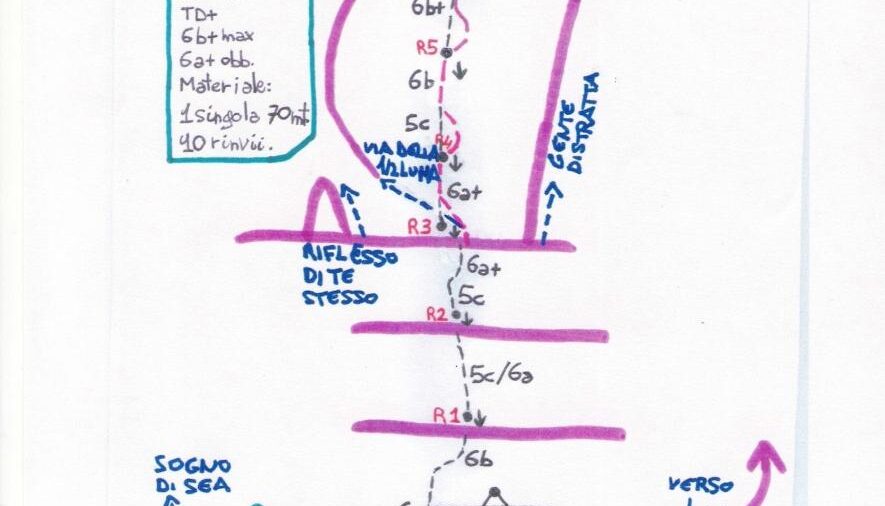 TD+
6b+ max
6a+ obb.
Materiale:
1 singola 70mt
10 rinvii.
6b+
R5
6b
5c
R4
VIA DELLA
1/2 LUNA
GENTE
DISTRATTA
6a+
R3
RIFLESSO
DI TE
STESSO
6a+
5c
R2
5c/6a
R1
6b
SOGNO
DI SEA
VERSO